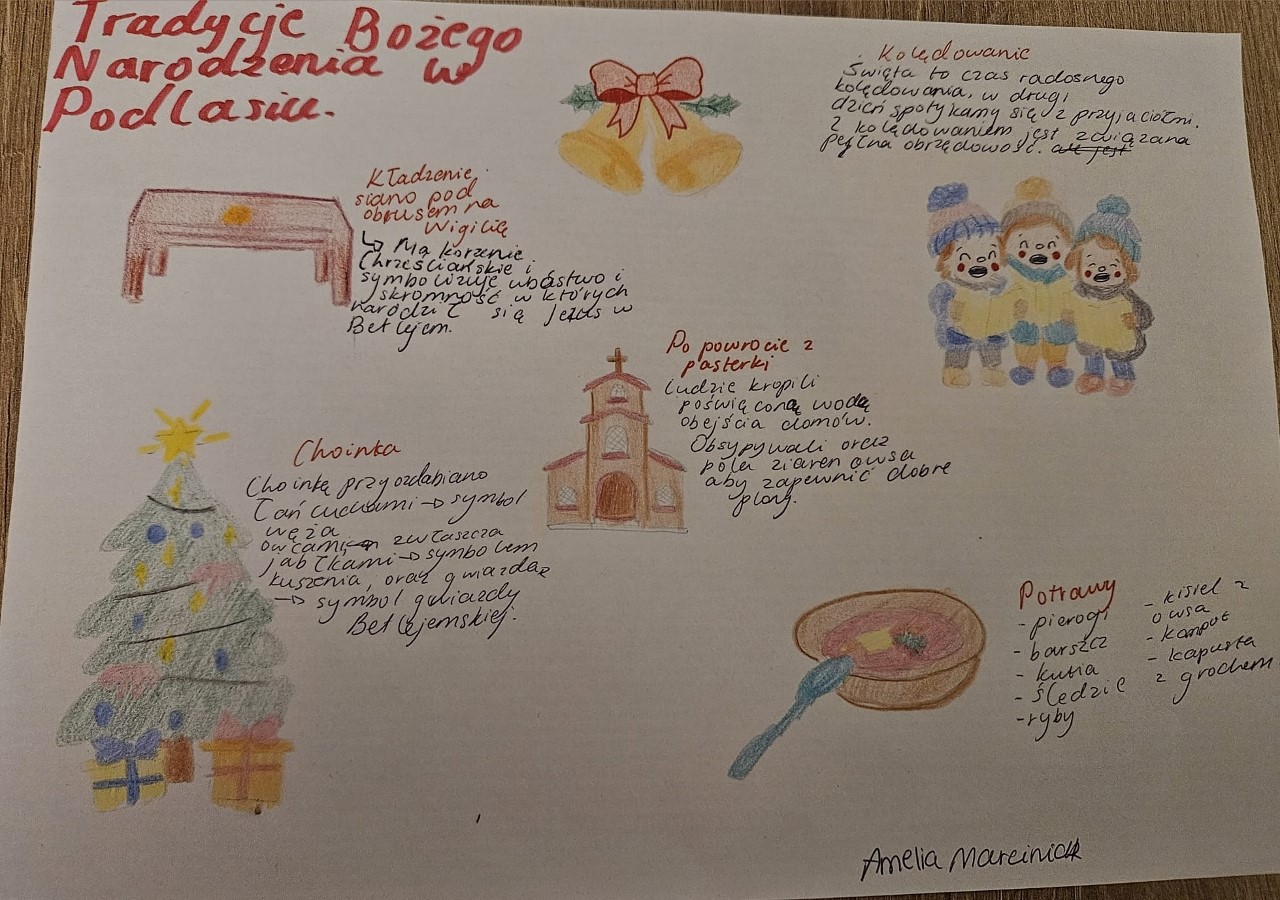 Tradycje Bożego
Narodzenia w
Podlasiu.
Kolędowanie
Święta to czas radosnego
kolędowania, w drugi
dzień spotykamy się z przyjaciółmi.
Z kolędowaniem jest związana
pełna obrzędowość. ale jest
Kładzenie
siano pod
obrusem na
Wigilię
↳ Ma korzenie
Chrześciańskie i
symbolizuje ubóstwo i
skromność w których
narodził się Jezus w
Betlejem.
Po powrocie z
pasterki
Ludzie kropili
poświęconą wodą
obejścia domów.
Obsypywali oraz
pola ziaren owsa
aby zapewnić dobre
plony.
Choinka
Choinkę przyozdabiano
łańcuchami → symbol
węża
owcami, zwłaszcza
jabłkami → symbolem
kuszenia, oraz gwiazdą
→ symbol gwiazdy
Betlejemskiej.
Potrawy
- pierogi
- barszcz
- kutia
- śledzie
- ryby
- kisiel z
owsa
- kompot
- kapusta
z grochem
Amelia Marciniak